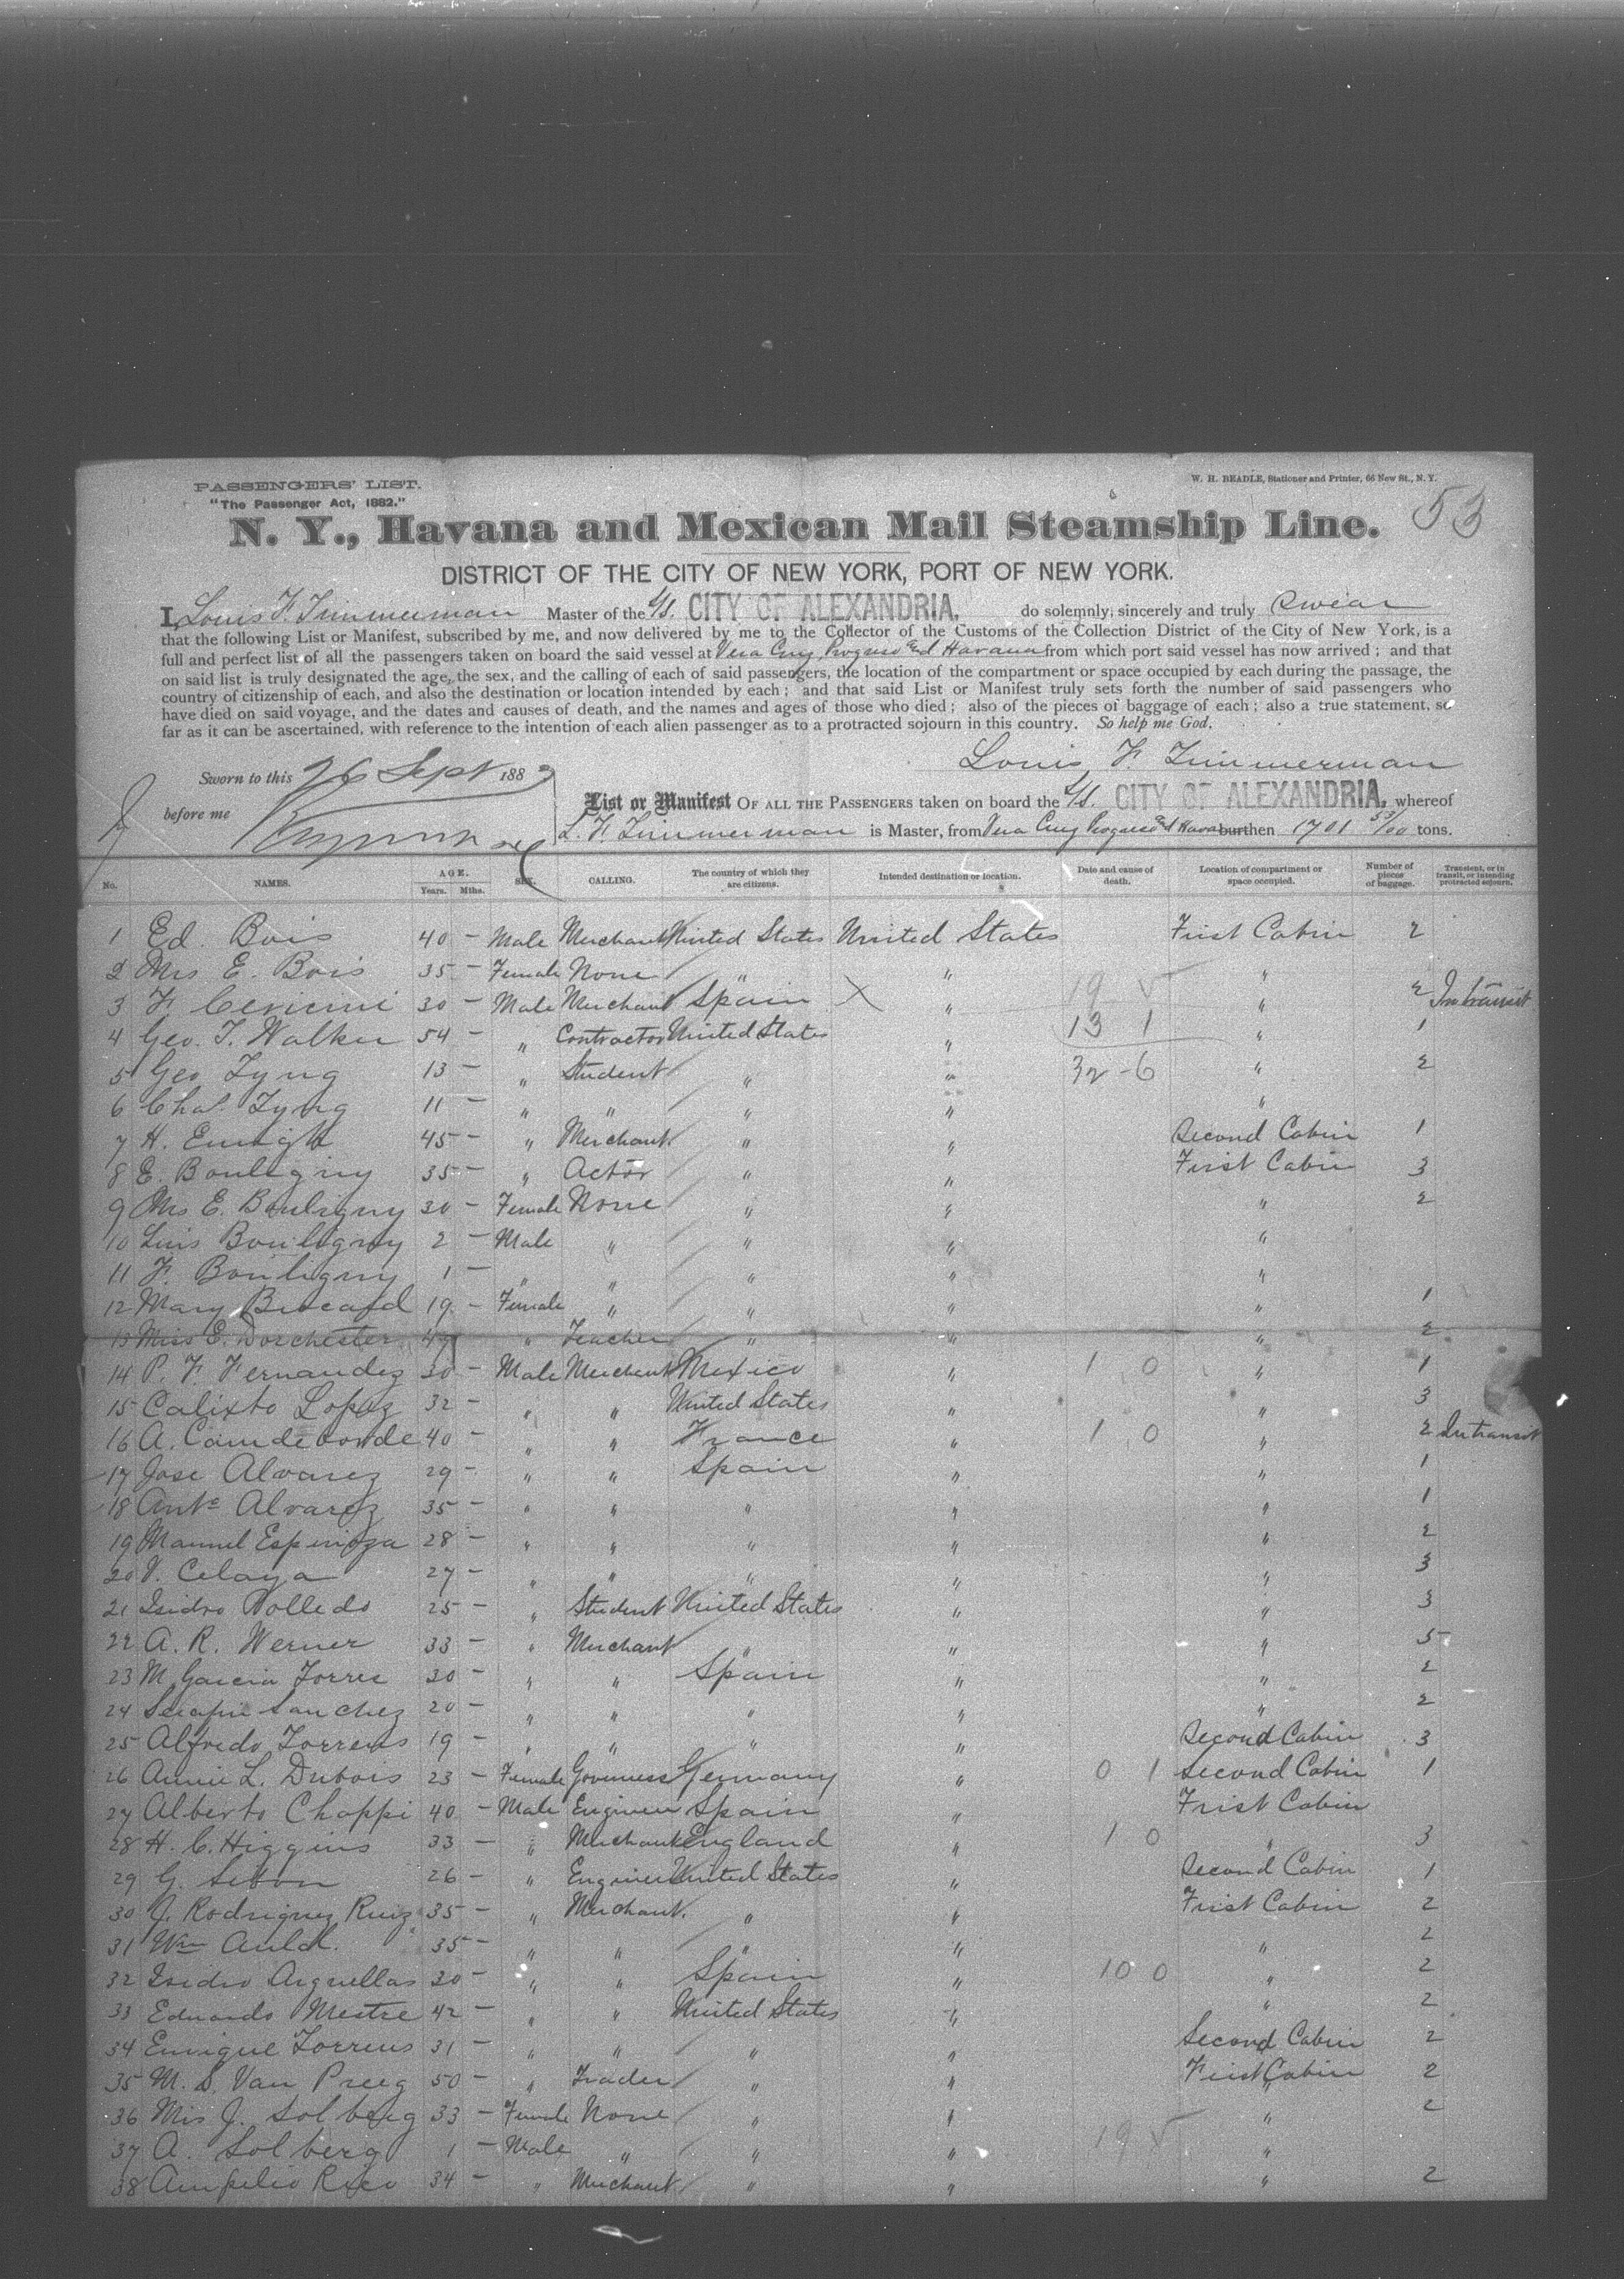 PASSENGERS' LIST.
W. H. BEADLE, Stationer and Printer, 66 New St., N. Y.
"The Passenger Act, 1882."
53
N. Y., Havana and Mexican Mail Steamship Line.
DISTRICT OF THE CITY OF NEW YORK, PORT OF NEW YORK.
I, Louis F. Timmerman Master of the CITY OF ALEXANDRIA, do solemnly, sincerely and truly swear
that the following List or Manifest, subscribed by me, and now delivered by me to the Collector of the Customs of the Collection District of the City of New York, is a
full and perfect list of all the passengers taken on board the said vessel at Vera Cruz, Progreso and Havana from which port said vessel has now arrived; and that
on said list is truly designated the age, the sex, and the calling of each of said passengers, the location of the compartment or space occupied by each during the passage, the
country of citizenship of each, and also the destination or location intended by each; and that said List or Manifest truly sets forth the number of said passengers who
have died on said voyage, and the dates and causes of death, and the names and ages of those who died; also of the pieces of baggage of each; also a true statement, so
far as it can be ascertained, with reference to the intention of each alien passenger as to a protracted sojourn in this country. So help me God.
Louis F. Timmerman
Sworn to this 26 Sept 188
before me
List or Manifest OF ALL THE PASSENGERS taken on board the CITY OF ALEXANDRIA, whereof
L. F. Timmerman is Master, from Vera Cruz Progreso and Havana burthen 1701 53/100 tons.
No. NAMES. AGE. Years. Mths. SEX. CALLING. The country of which they are citizens. Intended destination or location. Date and cause of death. Location of compartment or space occupied. Number of pieces of baggage. Transient, or in transit, or intending protracted sojourn.
1 Ed. Bois 40 - Male Merchant United States United States First Cabin 2
2 Mrs E. Bois 35 - Female None " " "
3 F. 30 - Male Merchant Spain X " 19 5 " 2 In transit
4 Geo. T. Walker 54 - " Contractor United States " 13 1 " 1
5 Geo Tyng 13 - " Student " " 32-6 " 2
6 Chas. Tyng 11 - " " " " "
7 H. 45 - " Merchant " " Second Cabin 1
8 E. Bouligny 35 - " Actor " " First Cabin 3
9 Mrs E. Bouligny 30 - Female None " " " 2
10 Luis Bouligny 2 - Male " " " "
11 F. Bouligny 1 - " " " " "
12 Mary 19 - Female " " " " 1
13 Miss E. Dorchester 49 " Teacher " " " 2
14 P. F. Fernandez 30 - Male Merchant Mexico " 1 0 " 1
15 Calixto Lopez 32 - " " United States " " 3
16 A. Camdeborde 40 - " " France " 1 0 " 2 In transit
17 Jose Alvarez 29 - " " Spain " " 1
18 Anto Alvarez 35 - " " " " " 1
19 Manuel Espinoza 28 - " " " " " 2
20 V. Celaya 27 - " " " " " 3
21 Isidro 25 - " Student United States " " 3
22 A. R. Werner 33 - " Merchant " " " 5
23 M. Garcia Torres 30 - " " Spain " " 2
24 Serafin Sanchez 20 - " " " " " 2
25 Alfredo Torrens 19 - " " " " Second Cabin 3
26 Annie L. Dubois 23 - Female Governess Germany " 0 1 Second Cabin 1
27 Alberto Chappi 40 - Male Engineer Spain " First Cabin
28 H. C. Higgins 33 - " Merchant England " 1 0 " 3
29 G. 26 - " Engineer United States " Second Cabin 1
30 J. Rodriguez Ruiz 35 - " Merchant " " First Cabin 2
31 Wm Auld. 35 - " " " " " 2
32 Isidro Arguellas 30 - " " Spain " 10 0 " 2
33 Eduardo Mestre 42 - " " United States " " 2
34 Enrique Torrens 31 - " " " " Second Cabin 2
35 M. S. Van Preeg 50 - " Trader " " First Cabin 2
36 Mrs J. Solberg 33 - Female None " " " 2
37 A. Solberg 1 - Male " " " 19 5 "
38 Ampelio Rico 34 - " Merchant " " " 2